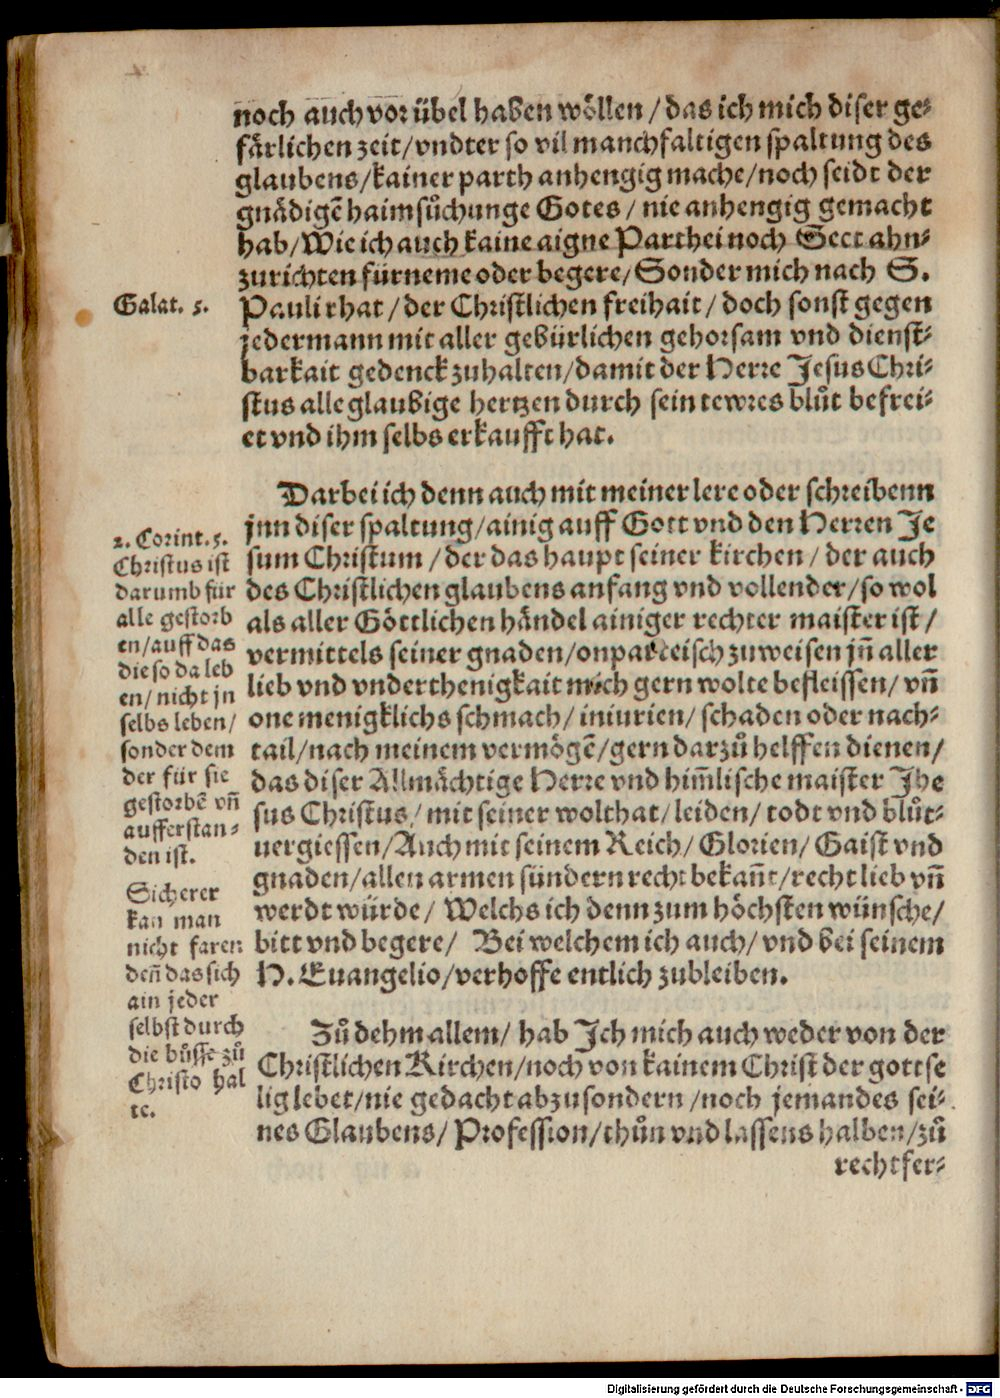 noch auch vor übel haben wöllen / das ich mich diser ge-
färlichen zeit / vndter so vil manchfaltigen spaltung des
glaubens / kainer parth anhengig mache / noch seidt der
gnädigē haimsůchunge Gotes / nie anhengig gemacht
hab / Wie ich auch kaine aigne Parthei noch Sect ahn-
zurichten fürneme oder begere / Sonder mich nach S.
Galat. 5.
Pauli rhat / der Christlichen freihait / doch sonst gegen
jedermann mit aller gebürlichen gehorsam vnd dienst-
barkait gedenck zuhalten / damit der Herre Jesus Chri-
stus alle glaubige hertzen durch sein tewres blůt befrei-
et vnd ihm selbs erkaufft hat.
Darbei ich denn auch mit meiner lere oder schreibenn
jnn diser spaltung / ainig auff Gott vnd den Herren Je
sum Christum / der das haupt seiner kirchen / der auch
des Christlichen glaubens anfang vnd vollender / so wol
als aller Göttlichen händel ainiger rechter maister ist /
vermittels seiner gnaden / onparteisch zuweisen jñ aller
lieb vnd vnderthenigkait mich gern wolte befleissen / vñ
one menigklichs schmach / iniurien / schaden oder nach-
tail / nach meinem vermögē / gern darzů helffen dienen /
das diser Allmächtige Herre vnd him̃lische maister Jhe
sus Christus / mit seiner wolthat / leiden / todt vnd blůt-
uergiessen / Auch mit seinem Reich / Glorien / Gaist vnd
gnaden / allen armen sündern recht bekañt / recht lieb vñ
werdt würde / Welchs ich denn zum höchsten wünsche /
bitt vnd begere / Bei welchem ich auch / vnd bei seinem
H. Euangelio / verhoffe entlich zubleiben.
2. Corint. 5.
Christus ist
darumb für
alle gestorb
en / auff das
die so da leb
en / nicht jn
selbs leben /
sonder dem
der für sie
gestorbē vñ
aufferstan-
den ist.
Sicherer
kan man
nicht faren
deñ das sich
ain jeder
selbst durch
die bůsse zů
Christo hal
te.
Zů dehm allem / hab Ich mich auch weder von der
Christlichen Kirchen / noch von kainem Christ der gottse
lig lebet / nie gedacht abzusondern / noch jemandes sei-
nes Glaubens / Profession / thůn vnd lassens halben / zů
rechtfer-
Digitalisierung gefördert durch die Deutsche Forschungsgemeinschaft - DFG